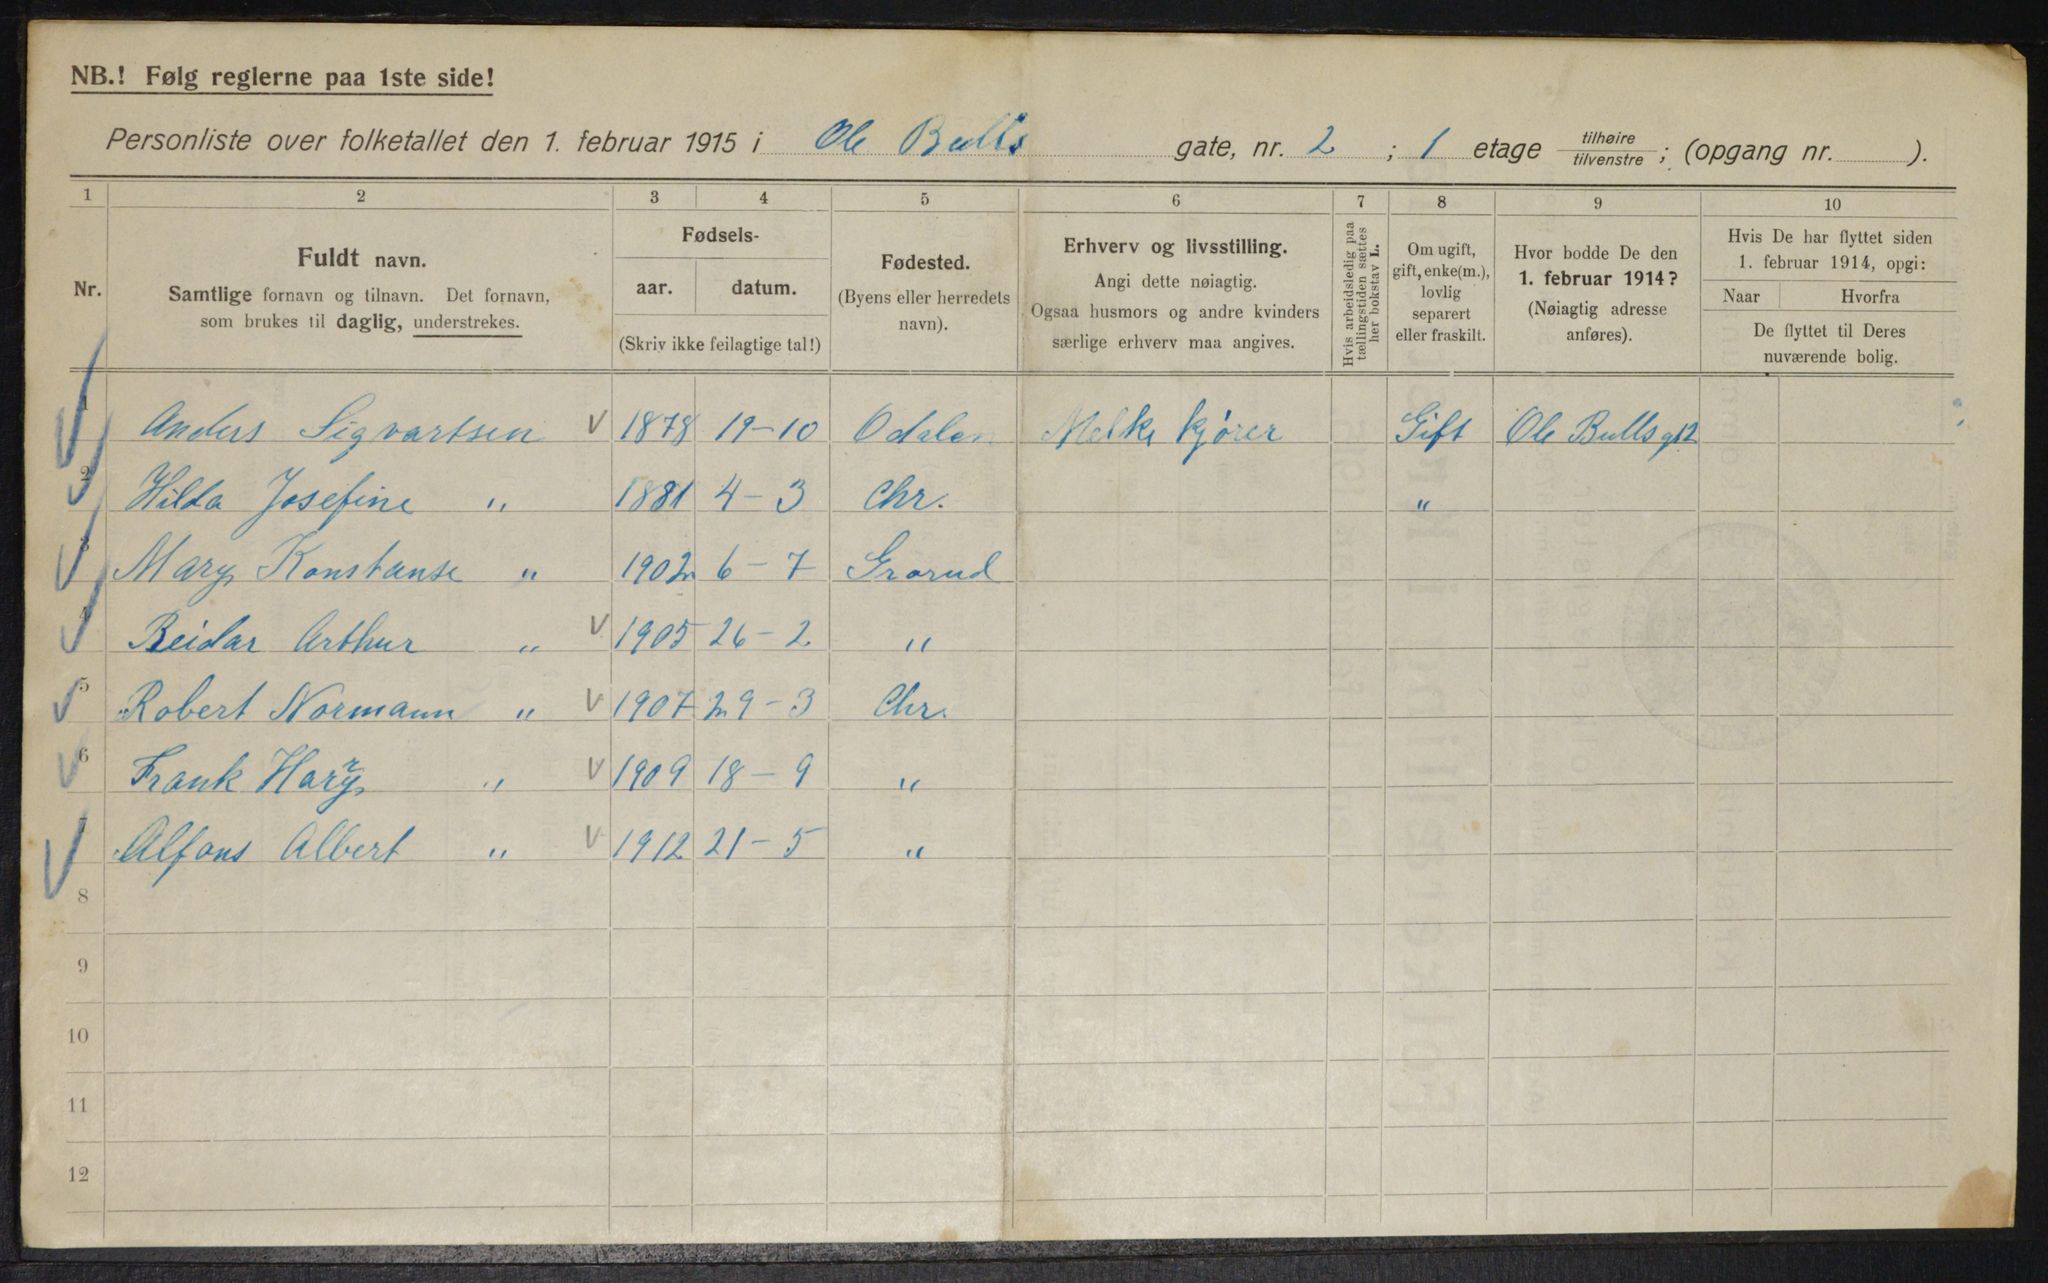 NB.! Følg reglerne paa 1ste side!
Personliste over folketallet den 1. februar 1915 i Ole Bulls gate, nr. 2 ; 1 etage tilhøire tilvenstre ; (opgang nr. ).
1 2 3 4 5 6 7 8 9 10
Nr.
Fuldt navn.
Samtlige fornavn og tilnavn. Det fornavn,
som brukes til daglig, understrekes.
Fødsels-
aar. datum.
(Skriv ikke feilagtige tal!)
Fødested.
(Byens eller herredets
navn).
Erhverv og livsstilling.
Angi dette nøiagtig.
Ogsaa husmors og andre kvinders
særlige erhverv maa angives.
Hvis arbeidsledig paa
tællingstiden sættes
her bokstav L.
Om ugift,
gift, enke(m.),
lovlig
separert
eller fraskilt.
Hvor bodde De den
1. februar 1914?
(Nøiagtig adresse
anføres).
Hvis De har flyttet siden
1. februar 1914, opgi:
Naar Hvorfra
De flyttet til Deres
nuværende bolig.
1 Anders Sigvartsen v 1878 19-10 Odalen Melke kjører Gift Ole Bulls g 12
2 Hilda Josefine " 1881 4-3 Chr. "
3 Mary Konstanse " 1902 6-7 Grorud
4 Reidar Arthur " v 1905 26-2 "
5 Robert Normann " v 1907 29-3 Chr.
6 Frank Harry " v 1909 18-9 "
Alfons Albert " v 1912 21-5 "
8
9
10
11
12